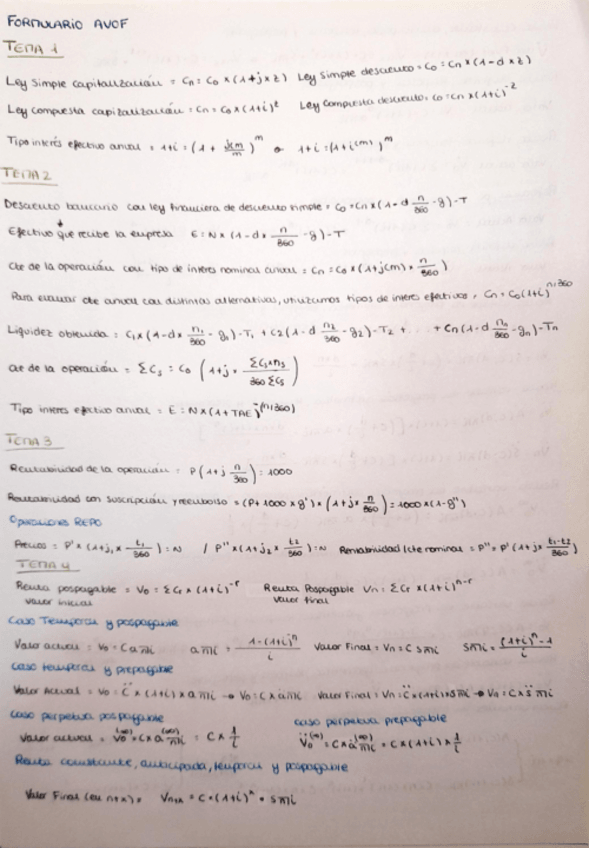 FORMULARIO AVOF
TEMA 1
Ley simple capitalización = Cn = Co x (1+j x z) Ley simple descuento = Co = Cn x (1-d x z)
Ley compuesta capitalización = Cn = Co x (1+i)^z Ley compuesta descuento = Co = Cn x (1+i)^-z
Tipo interés efectivo anual = 1+i = (1 + j(m)/m)^m o 1+i = (1+i(m))^m
TEMA 2
Descuento bancario con ley financiera de descuento simple = Co = Cn x (1-d n/360 -g)-T
Efectivo que recibe la empresa E = N x (1-d x n/360 -g)-T
cte de la operación con tipo de interés nominal anual = Cn = Co x (1+j(m) x n/360)
Para evaluar cte anual con distintas alternativas, utilizamos tipos de interes efectivos = Cn = Co(1+i)^n/360
Liquidez obtenida = C1 x (1-d x n1/360 - g1)-T1 + C2 (1-d n2/360 -g2)-T2 + ... + Cn (1-d nn/360 -gn)-Tn
cte de la operación = ΣCs = Co (1+j x ΣCs x ns / 360 ΣCs)
Tipo interes efectivo anual = E = N x (1+TAE)^-(n/360)
TEMA 3
Rentabilidad de la operación = P (1+j n/360) = 1000
Rentabilidad con suscripción y reembolso = (P+1000 x g') x (1+j x n/360) = 1000 x (1-g'')
Operaciones REPO
Precios = P' x (1+j1 x t1/360) = N / P'' x (1+j2 x t2/360) = N Rentabilidad/cte nominal = P'' = P' (1+j x t1-t2/360)
TEMA 4
Renta pospagable = Vo = ΣCr x (1+i)^-r Renta Pospagable Vn = ΣCr x (1+i)^n-r
valor inicial valor final
Caso Temporal y pospagable
Valor actual = Vo = C a n¬i a n¬i = 1-(1+i)^-n / i Valor Final = Vn = C s n¬i s n¬i = (1+i)^n -1 / i
caso temporal y prepagable
Valor Actual = Vo = C̈ x (1+i) x a n¬i → Vo = C x ä n¬i Valor Final = Vn = C̈ x (1+i) x s n¬i → Vn = C x s̈ n¬i
caso perpetua pospagable caso perpetua prepagable
Valor actual = Vo^(∞) = C x a^(∞) n¬i = C x 1/i V̈o^(∞) = C x ä^(∞) n¬i = C x (1+i) x 1/i
Renta constante, anticipada, temporal y pospagable
Valor Final (en n+x) = Vn+x = C x (1+i)^n · s n¬i